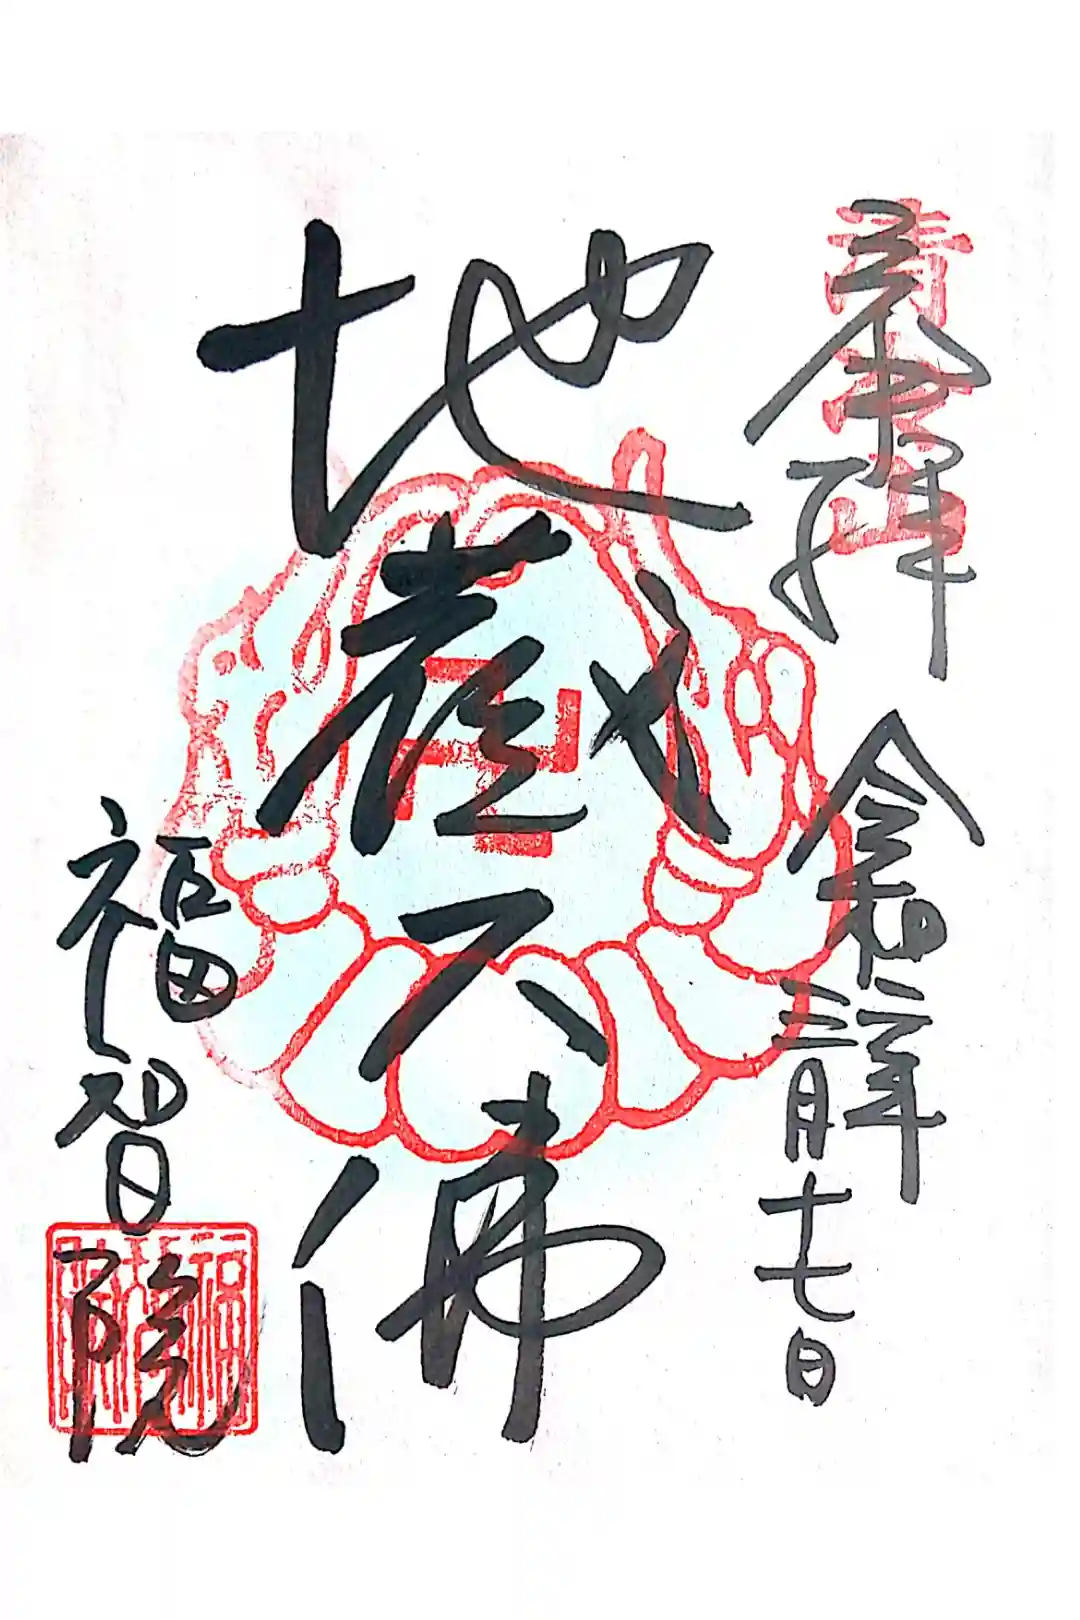 奉拝 令和二年
三月十七日
地蔵大佛
福智院